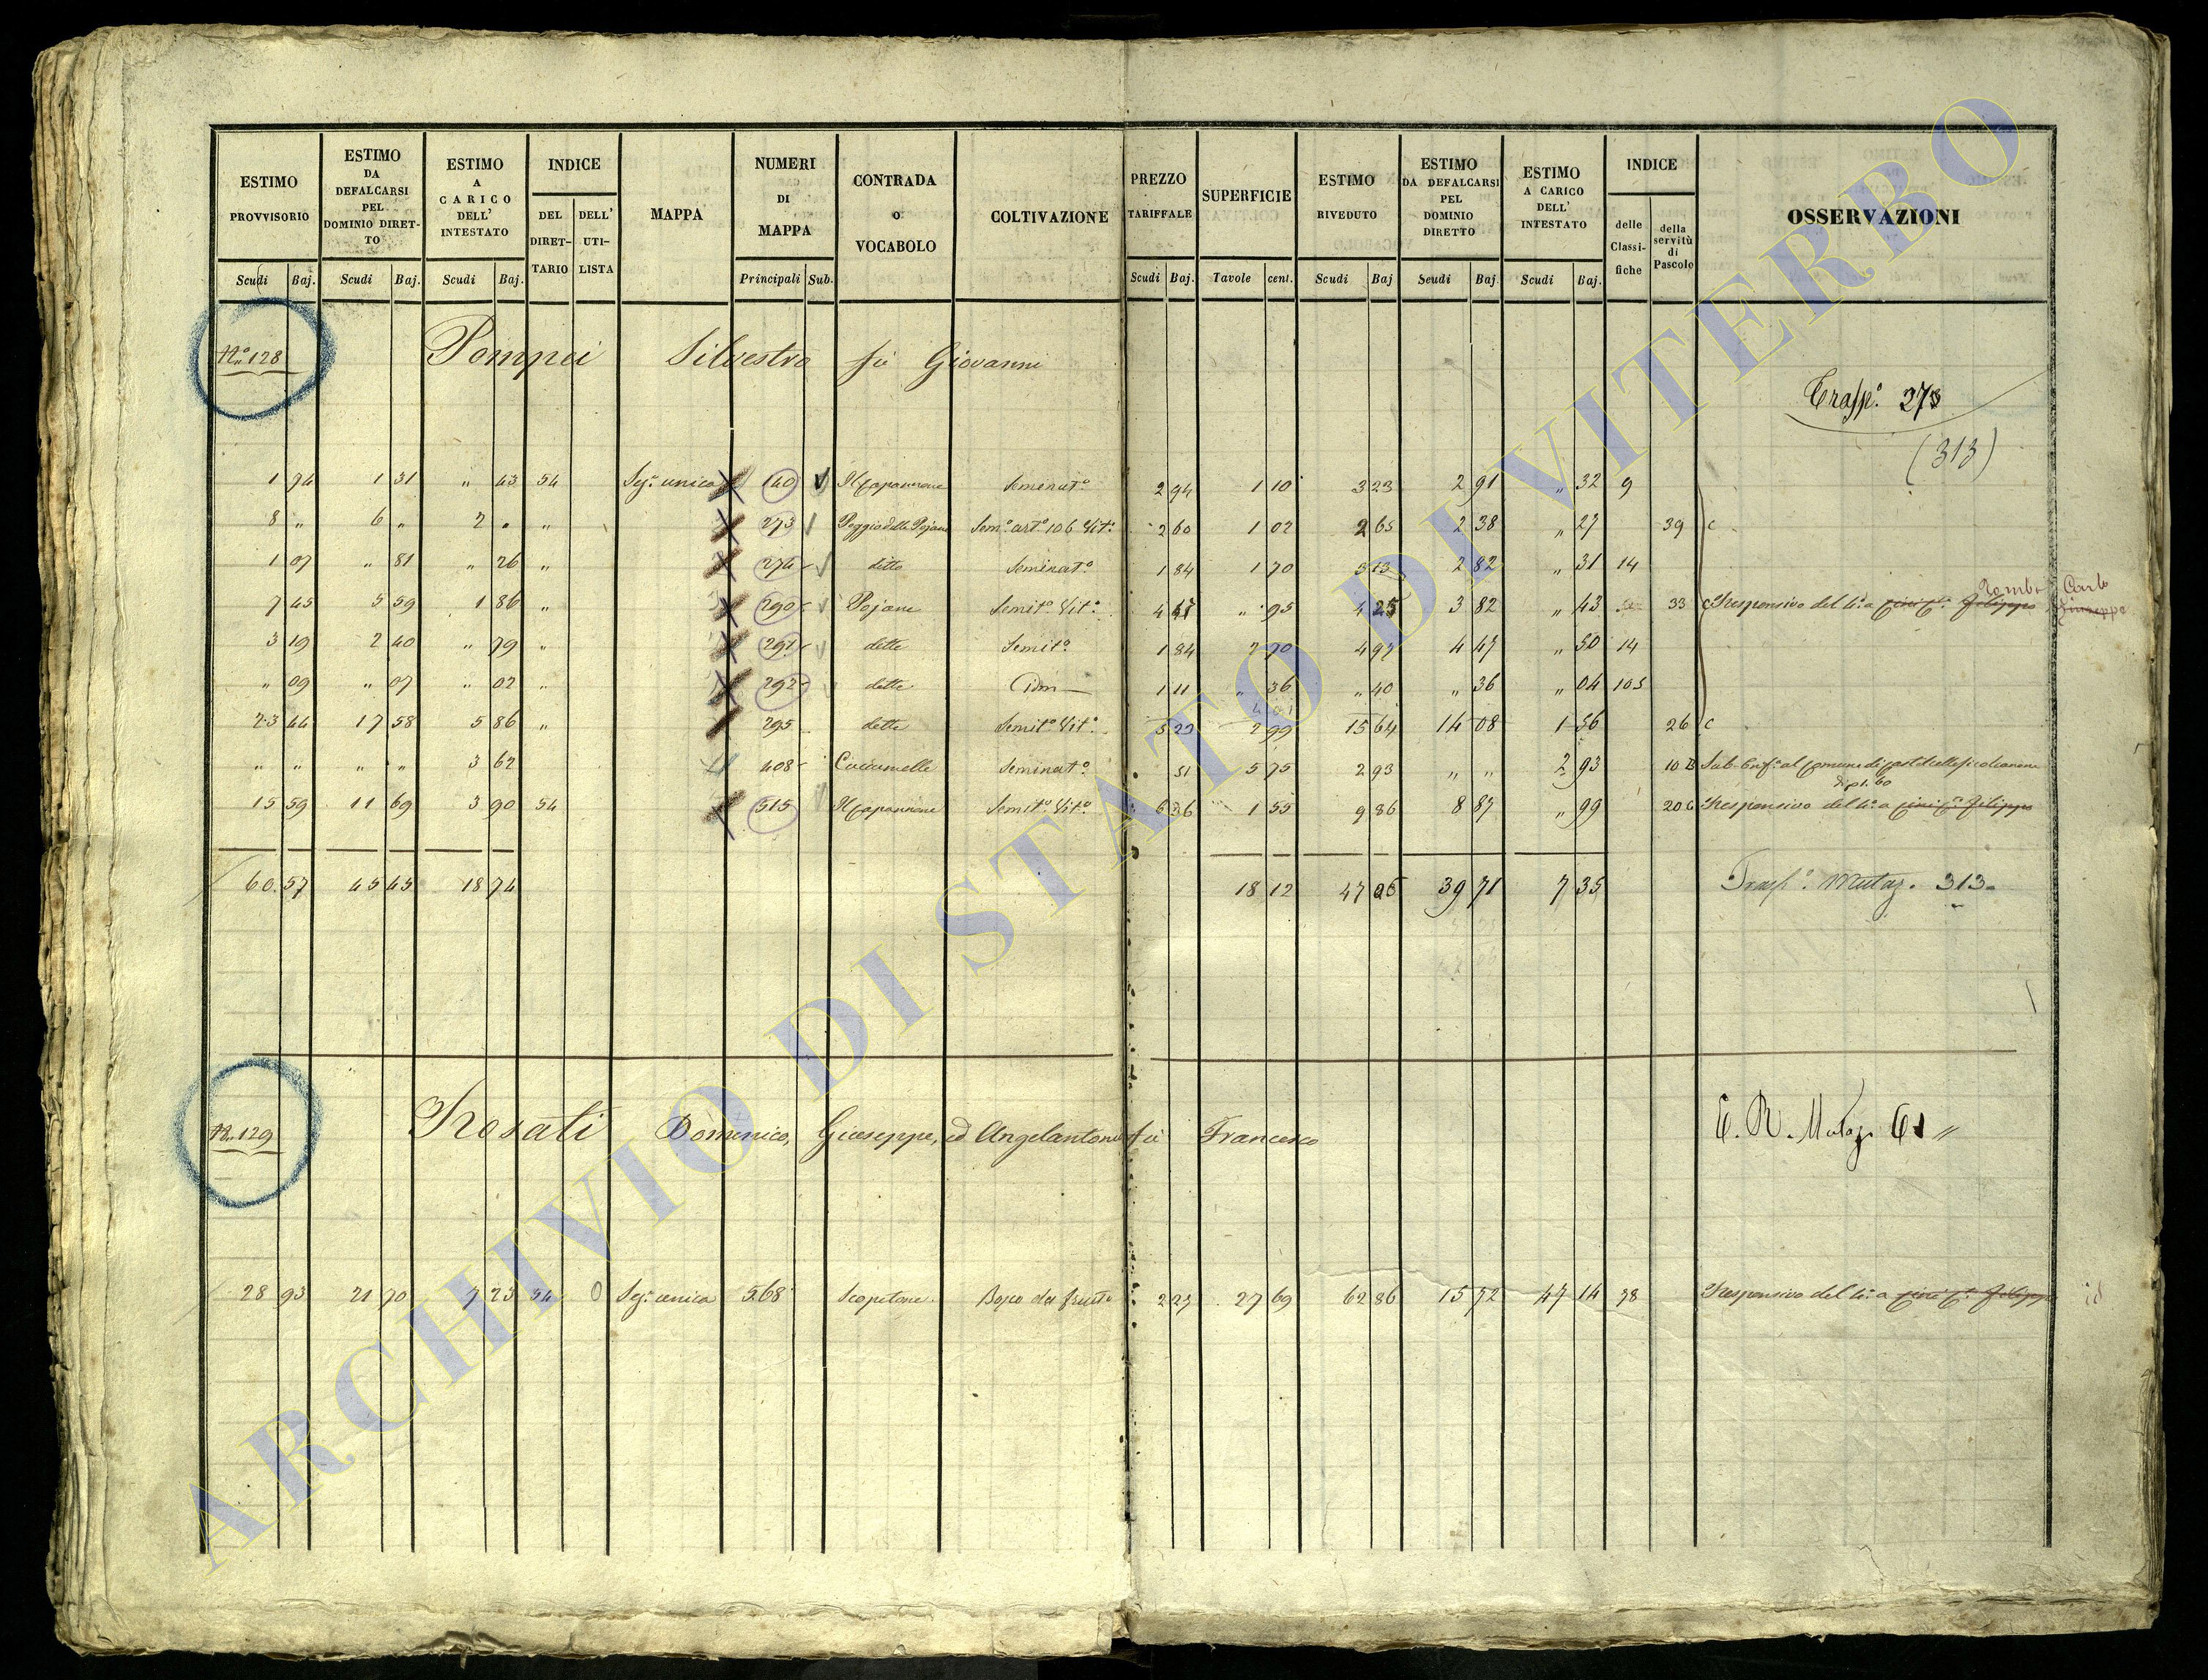 ESTIMO PROVVISORIO
ESTIMO DA DEFALCARSI PEL DOMINIO DIRET-TO
ESTIMO A CARICO DELL' INTESTATO
INDICE
DEL DIRET-TARIO
DELL' UTI-LISTA
MAPPA
NUMERI DI MAPPA
CONTRADA O VOCABOLO
COLTIVAZIONE
PREZZO TARIFFALE
SUPERFICIE
ESTIMO RIVEDUTO
ESTIMO DA DEFALCARSI PEL DOMINIO DIRETTO
ESTIMO A CARICO DELL' INTESTATO
INDICE
delle Classi-fiche
della servitù di Pascolo
OSSERVAZIONI
Scudi Baj. Scudi Baj. Scudi Baj. Principali Sub. Scudi Baj. Tavole cent. Scudi Baj Scudi Baj Scudi Baj.
N.º 128 Pompei Silvestro fù Giovanni
Trasp.º 273
(313)
1 74 1 31 " 43 54 Sez.e unica 140 Il Capannone Seminat.º 2 94 1 10 3 23 2 91 " 32 9
8 " 6 " 2 " " 273 Poggio delle Pojane Sem.º art.º 106 Vit.º 2 60 1 02 2 65 2 38 " 27 39 c
1 07 " 81 " 26 " 274 ditto Seminat.º 1 84 1 70 3 13 2 82 " 31 14
7 45 5 59 1 86 " 290 Pojane Semit.º Vit.º 4 47 " 95 4 25 3 82 " 43 33 c Responsivo del 4.º a Filippo
Carlo
Giuseppe
3 19 2 40 " 79 " 291 dette Semit.º 1 84 2 70 4 97 4 47 " 50 14
" 09 " 07 " 02 " 292 dette Idm 1 11 " 36 " 40 " 36 " 04 103
23 44 17 58 5 86 " 295 dette Semit.º Vit.º 5 23 2 99 15 64 14 08 1 56 26 c
" " " " 3 62 408 Cucumelle Seminat.º 51 5 75 2 93 " " 2 93 10 B
15 59 11 69 3 90 54 515 Il Capannone Semit.º Vit.º 6 36 1 55 9 86 8 87 " 99 20 c Responsivo del 4.º a Filippo
60 57 45 45 18 74 18 12 47 06 39 71 7 35 Trasp.º Mutaz. 313
N. 129 Rosati Domenico, Giuseppe, ed Angelantonio fù Francesco
E. R. Mutaz. 61 "
28 93 21 70 7 23 54 0 Sez.e unica 568 Scopetone Bosco da frutto 2 27 27 69 62 86 15 72 47 14 38 Responsivo del 4.º a Filippo id
ARCHIVIO DI STATO DI VITERBO